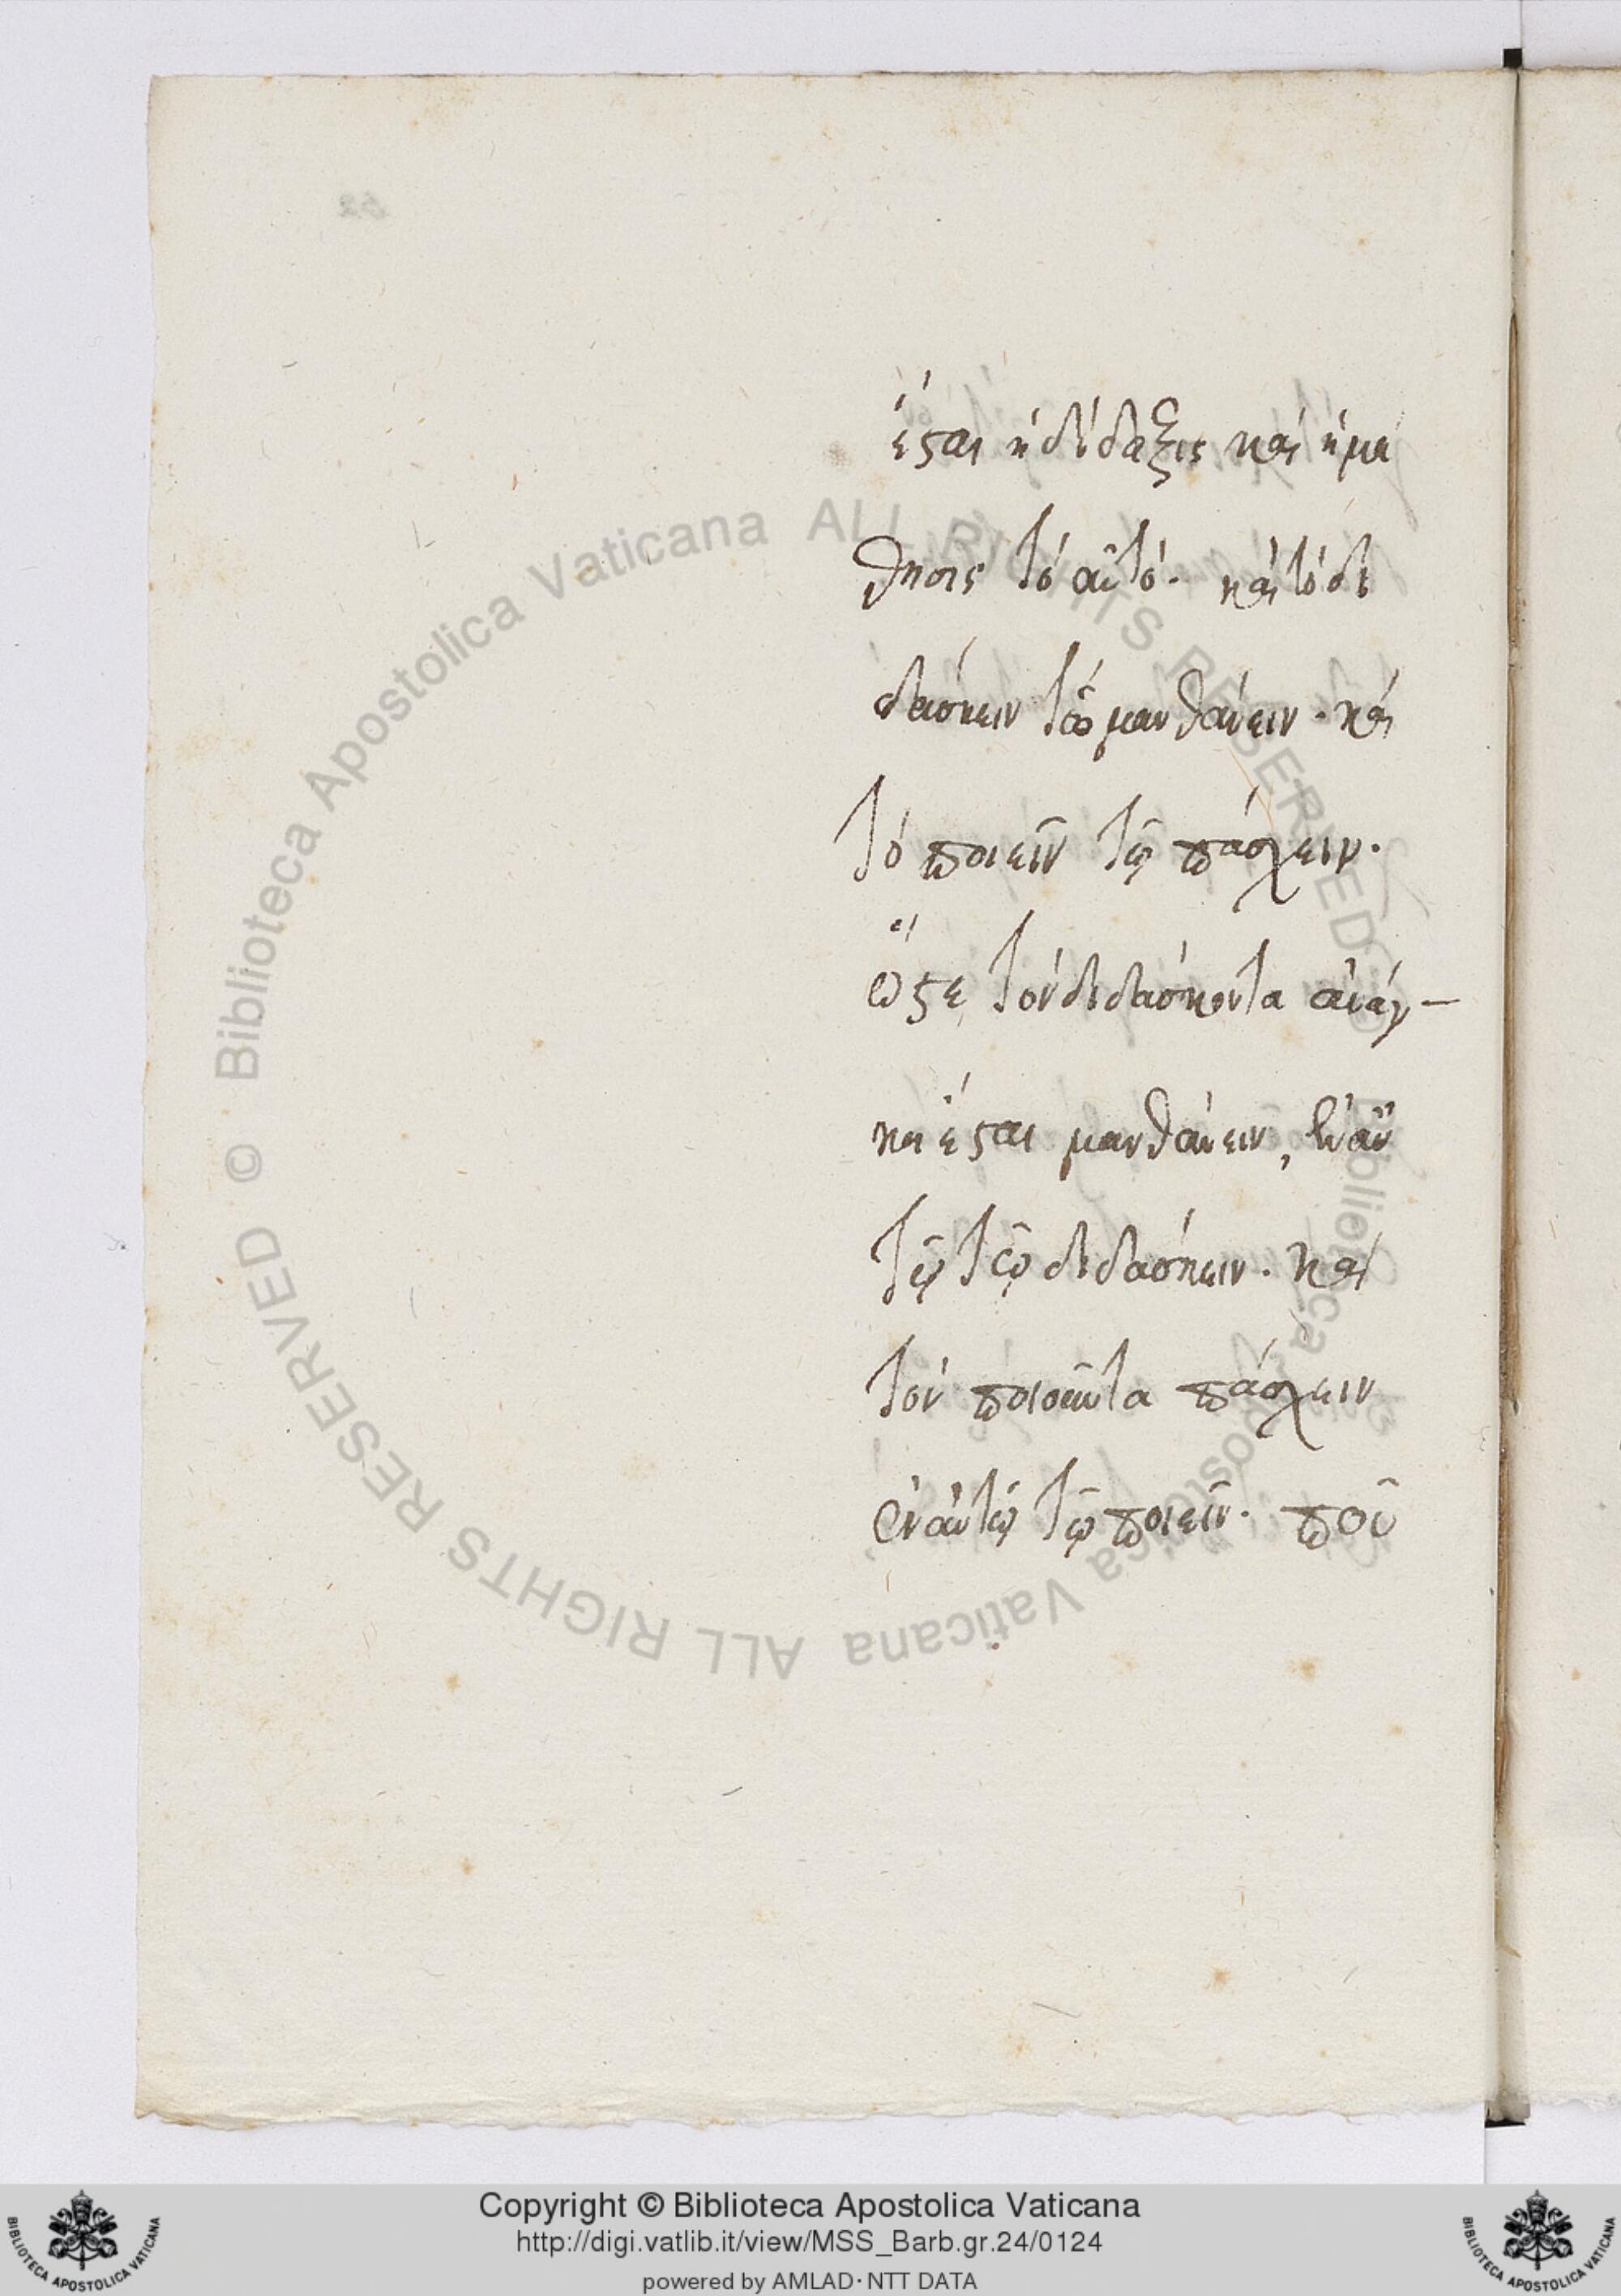 ἔσται ἡ δίδαξις καὶ ἡ μά
θησις τὸ αὐτό· καὶ τὸ δι
δάσκειν τῷ μανθάνειν· καὶ
τὸ ποιεῖν τῷ πάσχειν·
ὥστε τὸν διδάσκοντα ἀνάγ–
κη ἔσται μανθάνειν, ἐν αὐ
τῷ τῷ διδάσκειν· καὶ
τὸν ποιοῦντα πάσχειν
ἐν αὐτῷ τῷ ποιεῖν· ποῦ
© Biblioteca Apostolica Vaticana ALL RIGHTS RESERVED © Biblioteca Apostolica Vaticana ALL RIGHTS RESERVED
Copyright © Biblioteca Apostolica Vaticana
http://digi.vatlib.it/view/MSS_Barb.gr.24/0124
powered by AMLAD · NTT DATA
BIBLIOTECA APOSTOLICA VATICANA
BIBLIOTECA APOSTOLICA VATICANA